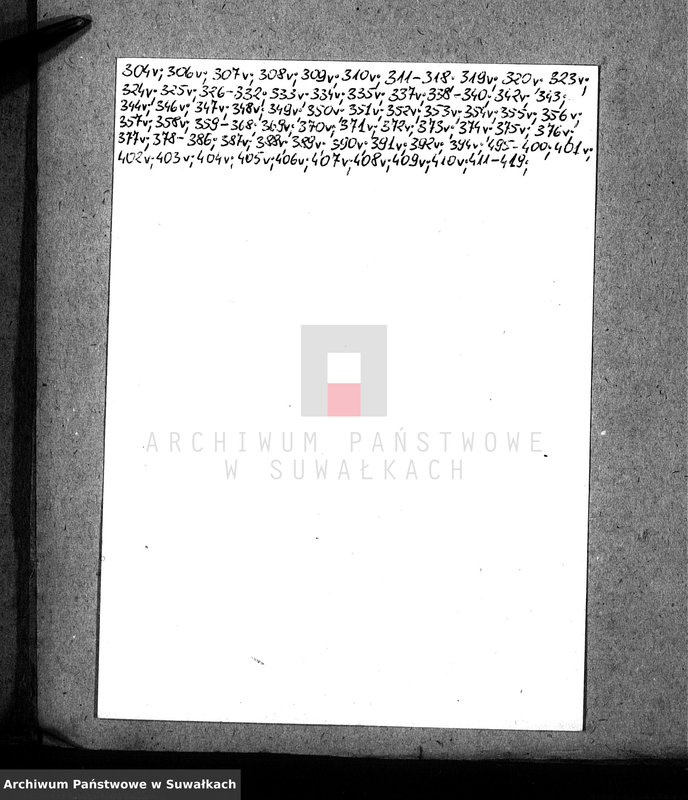 304v; 306v; 307v; 308v; 309v; 310v; 311-318; 319v; 320v; 323v;
324v; 325v; 326-332; 333v; 334v; 335v; 337v; 338-340; 342v; 343;
344v; 346v; 347v; 348v; 349v; 350v; 351v; 352v; 353v; 354v; 355v; 356v;
357v; 358v; 359-368; 369v; 370v; 371v; 372v; 373v; 374v; 375v; 376v;
377v; 378-386; 387v; 388v; 389v; 390v; 391v; 392v; 394v; 495-400; 401v;
402v; 403v; 404v; 405v; 406v; 407v; 408v; 409v; 410v; 411-419;
ARCHIWUM PAŃSTWOWE
W SUWAŁKACH
Archiwum Państwowe w Suwałkach